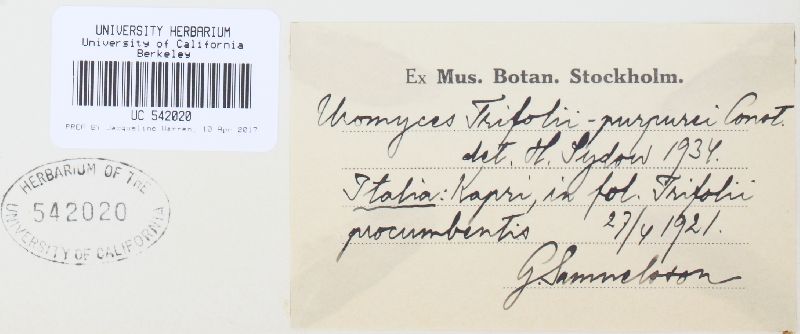 UNIVERSITY HERBARIUM
University of California
Berkeley
UC 542020
PREP BY Jacqueline Warren, 10 Apr 2017
HERBARIUM OF THE
542020
UNIVERSITY OF CALIFORNIA
Ex Mus. Botan. Stockholm.
Uromyces Trifolii-purpurei Const.
det. H. Sydow 1934.
Italia: Kapri, in fol. Trifolii
procumbentis 27/4 1921.
G. Samuelsson